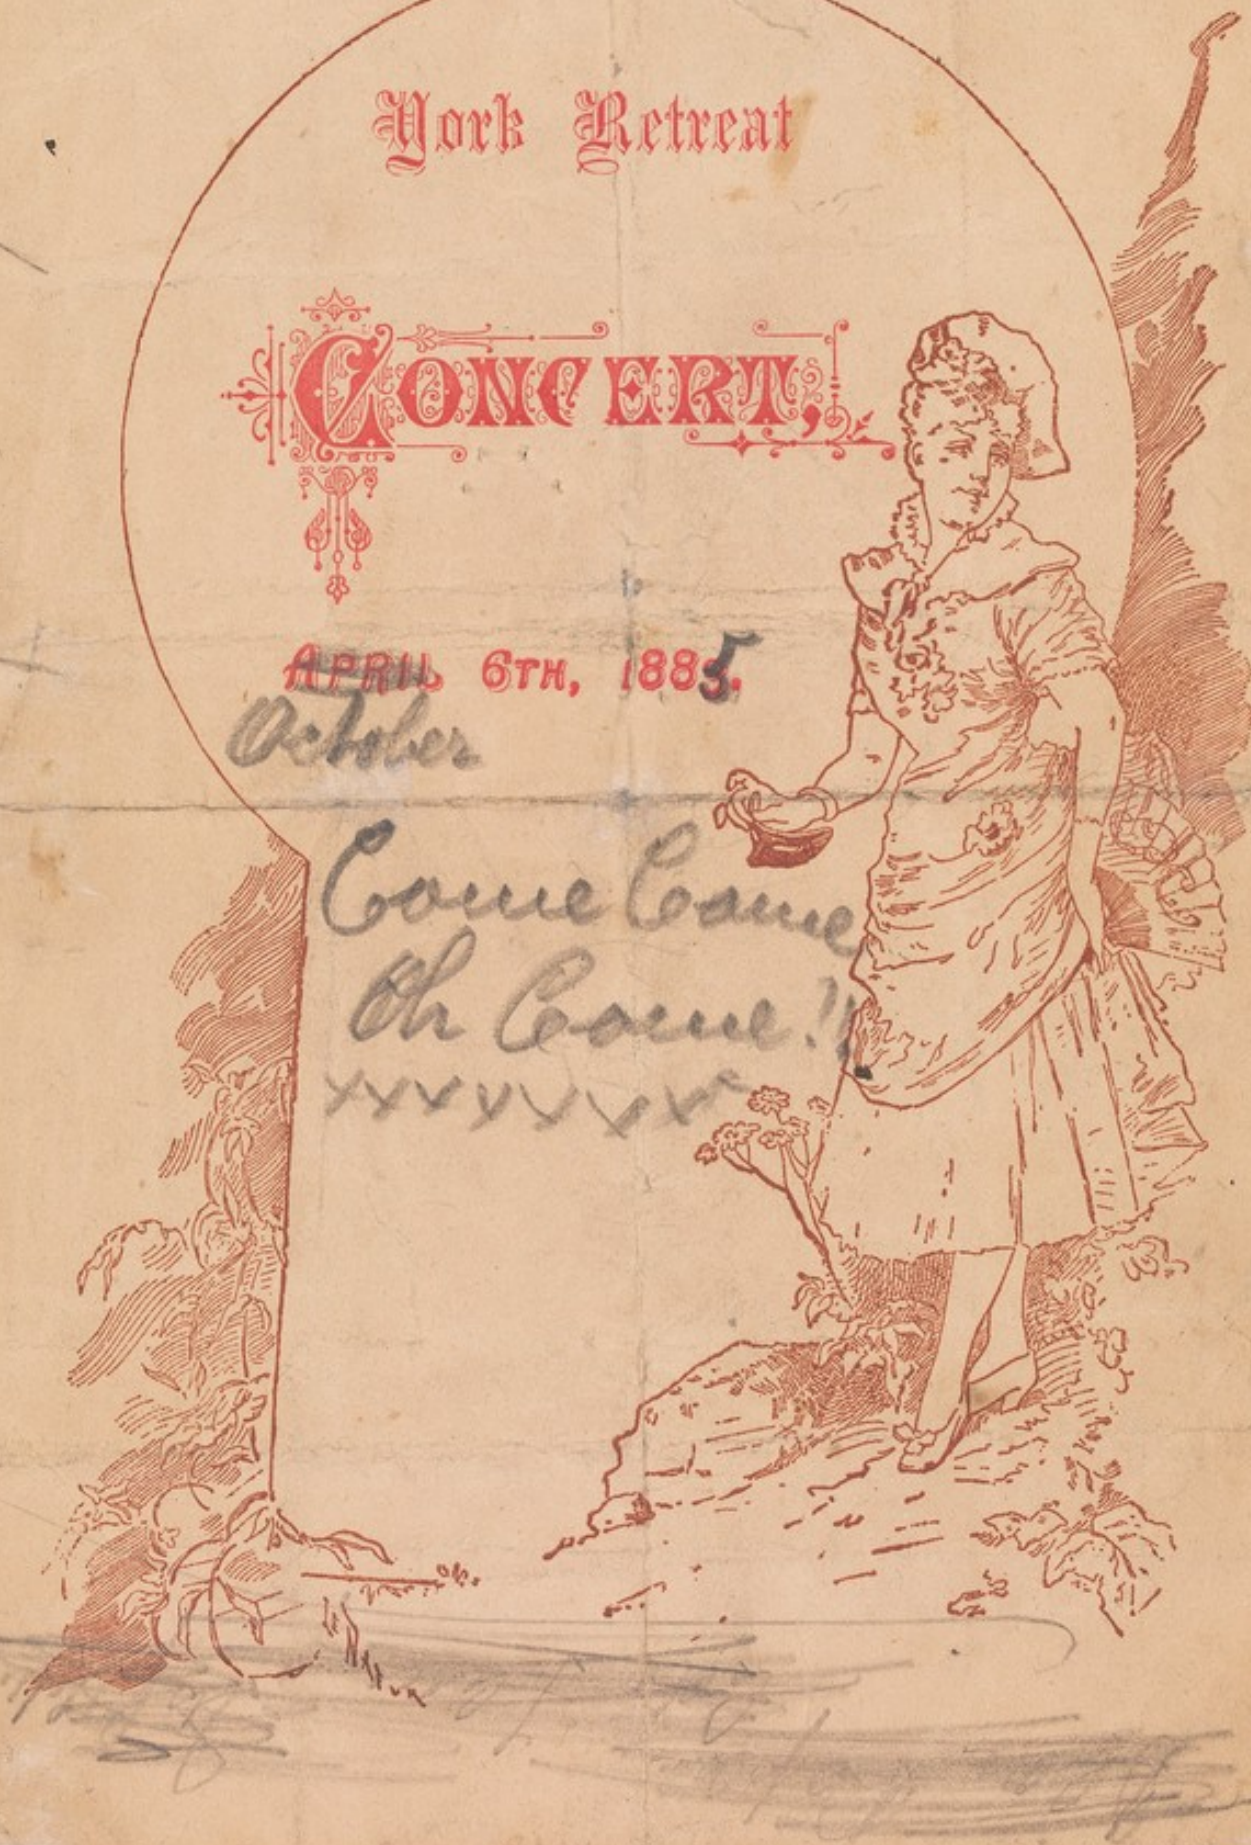 York Retreat
CONCERT,
APRIL 6TH, 1885.
October
Come Come
Oh Come!!
xxxxxxxx